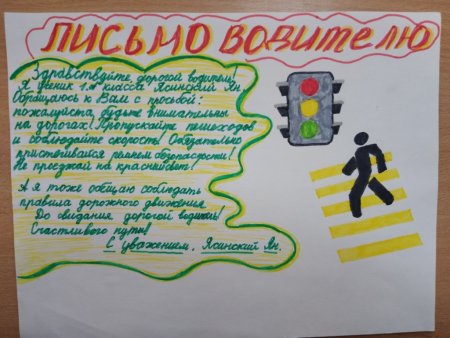 ПИСЬМО ВОДИТЕЛЮ
Здравствуйте, дорогой водитель!
Я ученик 1.А класса Ясинский Ян.
Обращаюсь к Вам с просьбой:
пожалуйста, будьте внимательны
на дорогах! Пропускайте пешеходов
и соблюдайте скорость! Обязательно
пристёгивайся ремнем безопасности!
Не проезжай на красный свет!
А я тоже обещаю соблюдать
правила дорожного движения.
До свидания дорогой водитель!
Счастливого пути!
С уважением, Ясинский Ян.